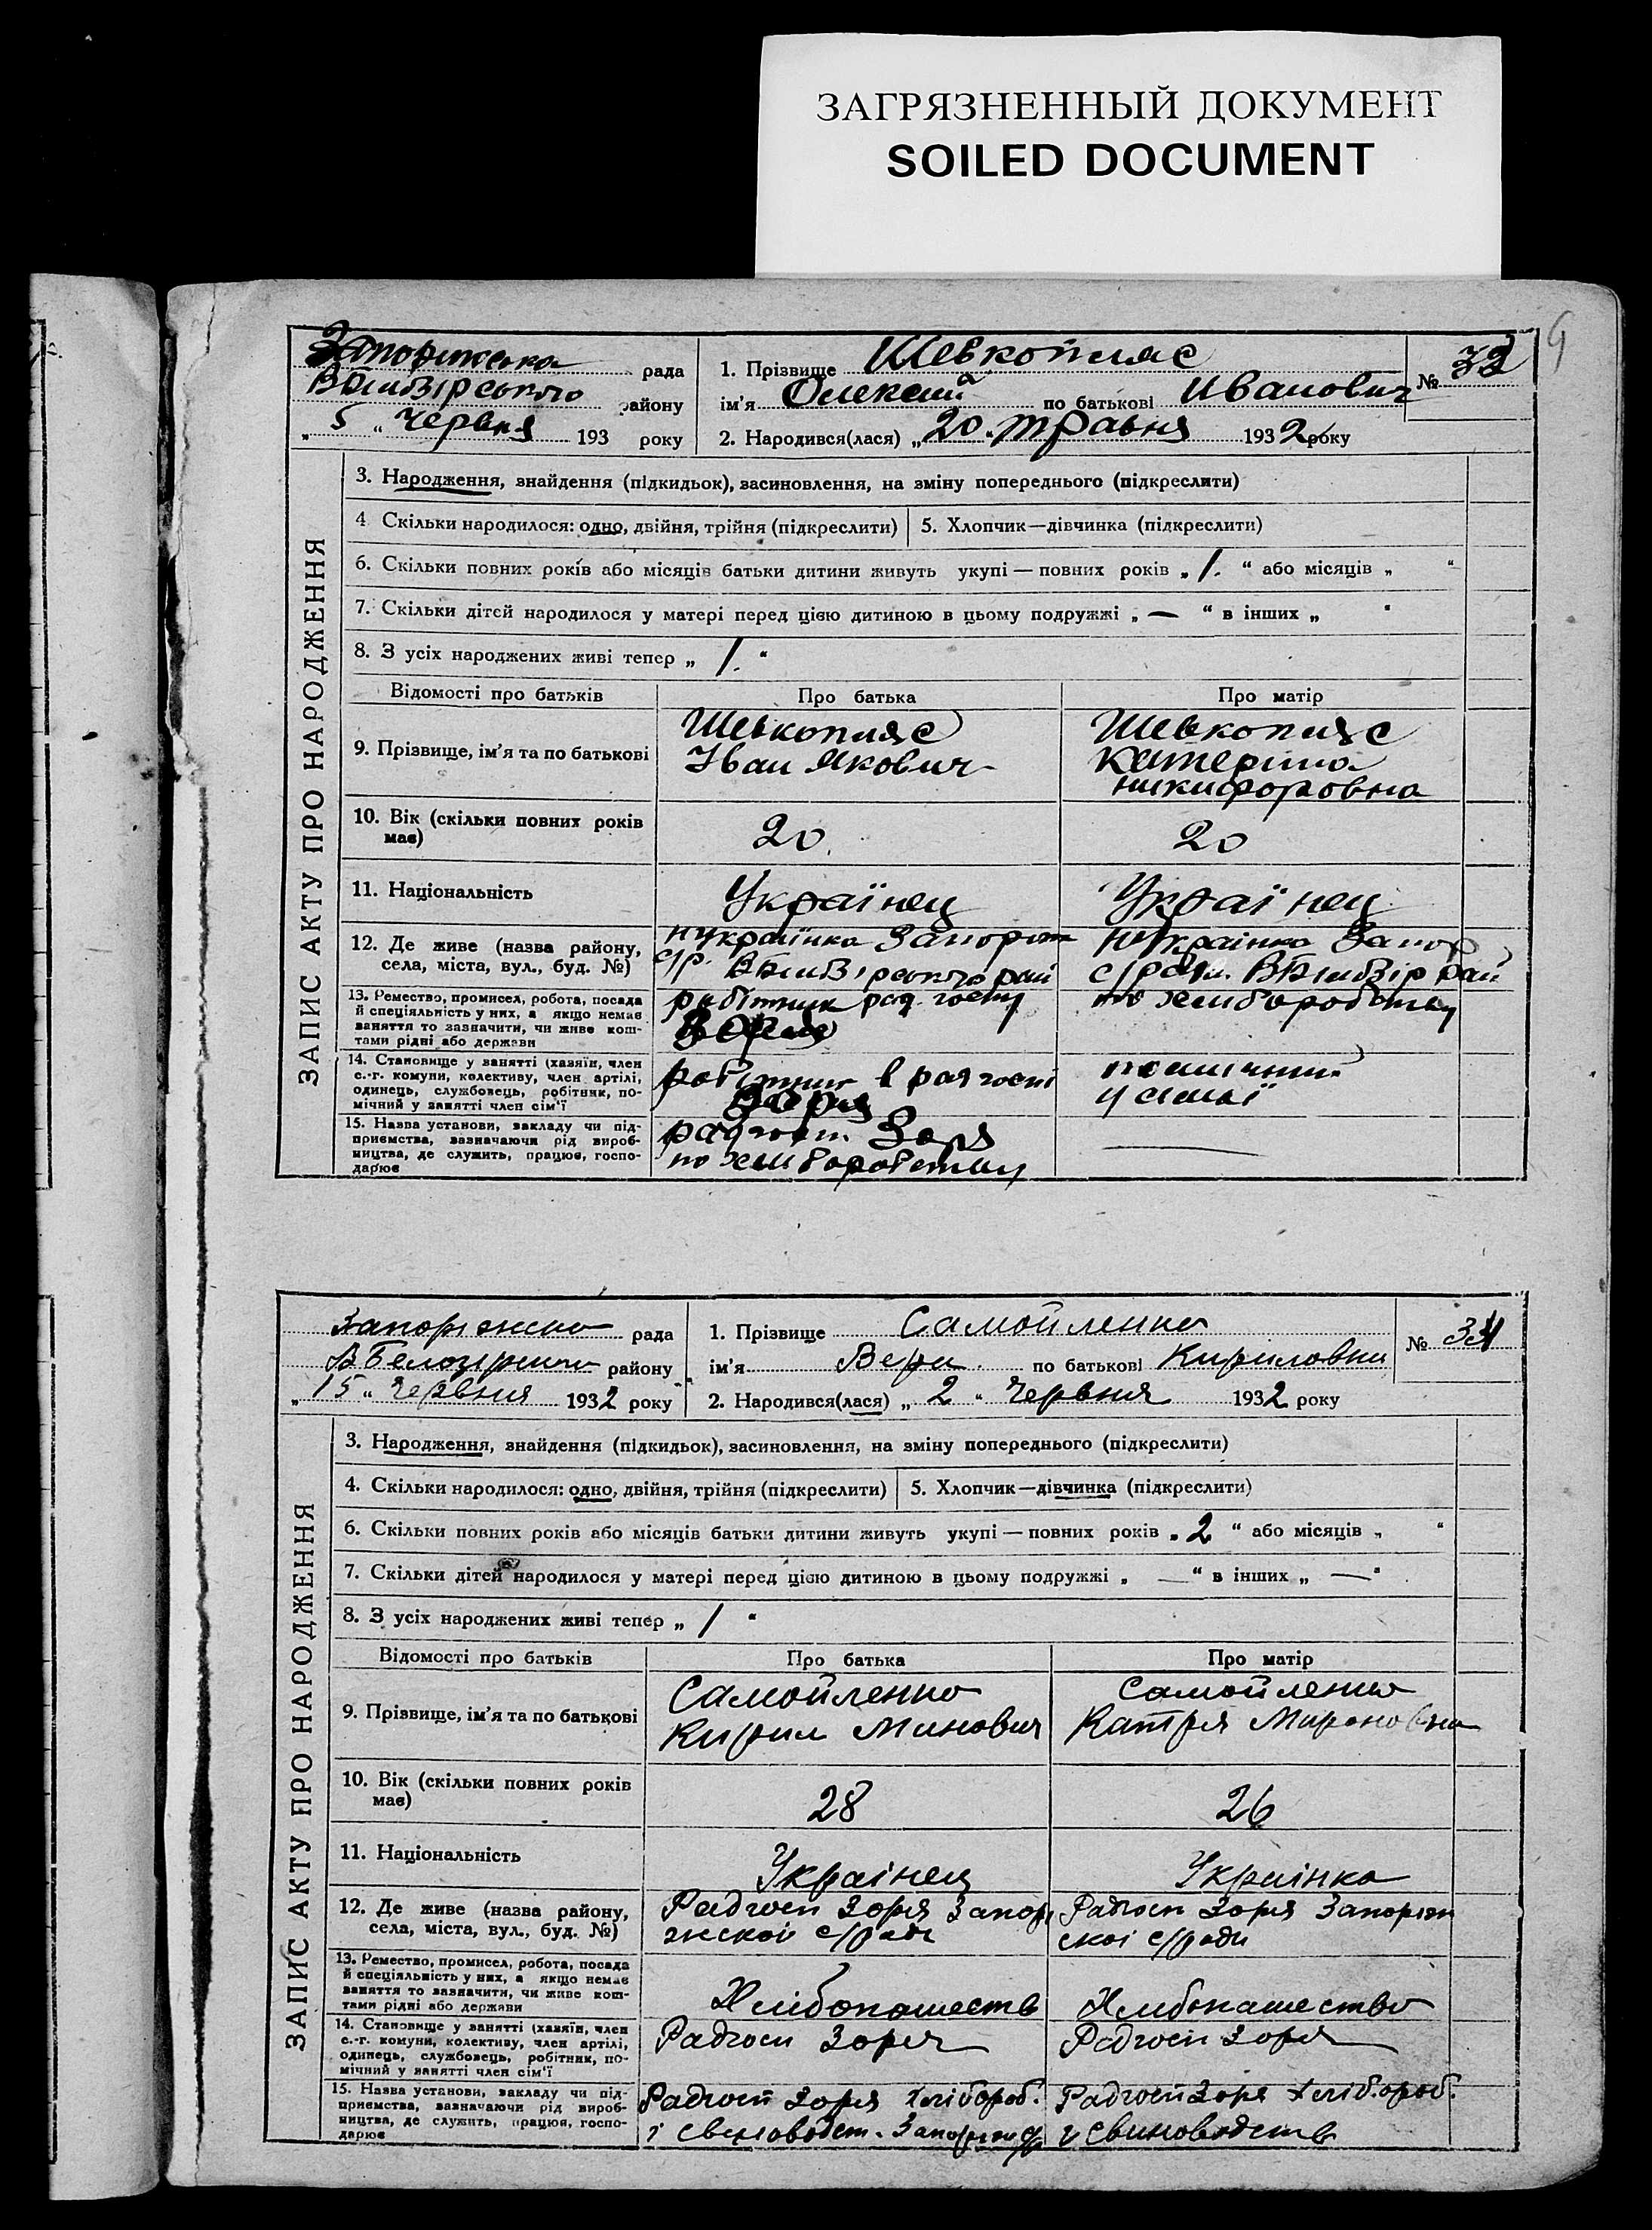 ЗАГРЯЗНЕННЫЙ ДОКУМЕНТ
SOILED DOCUMENT
9
Запорижська рада
району
„ 5 “ Червня 193 року
1. Прізвище Шевкопляс
ім'я Олексій по батькові Иванович
2. Народився(лася) „ 20 “ травня 1932 року
№
ЗАПИС АКТУ ПРО НАРОДЖЕННЯ
3. Народження, знайдення (підкидьок), засиновлення, на зміну попереднього (підкреслити)
4 Скільки народилося: одно, двійня, трійня (підкреслити) 5. Хлопчик—дівчинка (підкреслити)
6. Скільки повних років або місяців батьки дитини живуть укупі — повних років „ 1. “ або місяців „ “
7. Скільки дітей народилося у матері перед цією дитиною в цьому подружжі „ — “ в інших „ “
8. З усіх народжених живі тепер „ 1. “
Відомості про батьків Про батька Про матір
9. Прізвище, ім'я та по батькові
Шевкопляс
Іван Якович
Шевкопляс
Катерина
никифоровна
10. Вік (скільки повних років
має)
20
20
11. Національність
Українец
Українец
12. Де живе (назва району,
села, міста, вул., буд. №)
13. Ремество, промисел, робота, посада
й спеціяльність у них, а якщо немає
заняття то зазначити, чи живе кош-
тами рідні або держави
робітник
Зоря
14. Становище у занятті (хазяїн, член
с.-г. комуни, колективу, член артілі,
одинець, службовець, робітник, по-
мічний у занятті член сім'ї
робітник в
Зоря
15. Назва установи, закладу чи під-
приємства, зазначаючи рід вироб-
ництва, де служить, працює, госпо-
дарює
Зоря
по
Запоріжско рада
району
„ 15 “ Червня 1932 року
1. Прізвище Самойленко
ім'я Вера по батькові Кириловна
2. Народився(лася) „ 2 “ Червня 1932 року
№ 34
ЗАПИС АКТУ ПРО НАРОДЖЕННЯ
3. Народження, знайдення (підкидьок), засиновлення, на зміну попереднього (підкреслити)
4. Скільки народилося: одно, двійня, трійня (підкреслити) 5. Хлопчик—дівчинка (підкреслити)
6. Скільки повних років або місяців батьки дитини живуть укупі — повних років „ 2 “ або місяців „ “
7. Скільки дітей народилося у матері перед цією дитиною в цьому подружжі „ — “ в інших „ — “
8. З усіх народжених живі тепер „ 1 “
Відомості про батьків Про батька Про матір
9. Прізвище, ім'я та по батькові
Самойленко
Кирил Минович
Самойленко
Катря Мироновна
10. Вік (скільки повних років
має)
28
26
11. Національність
Украінец
Украінка
12. Де живе (назва району,
села, міста, вул., буд. №)
Радгосп Зоря Запорі
жскоі с/ради
Радгосп Зоря Запоріж
скоі с/ради
13. Ремество, промисел, робота, посада
й спеціяльність у них, а якщо немає
заняття то зазначити, чи живе кош-
тами рідні або держави
Хлібопашеств
Хлібопашество
14. Становище у занятті (хазяїн, член
с.-г. комуни, колективу, член артілі,
одинець, службовець, робітник, по-
мічний у занятті член сім'ї
Радгосп Зоря
Радгосп Зоря
15. Назва установи, закладу чи під-
приємства, зазначаючи рід вироб-
ництва, де служить, працює, госпо-
дарює
Радгосп Зоря хлібороб.
і
Радгосп Зоря хлібороб.
и свиноводств